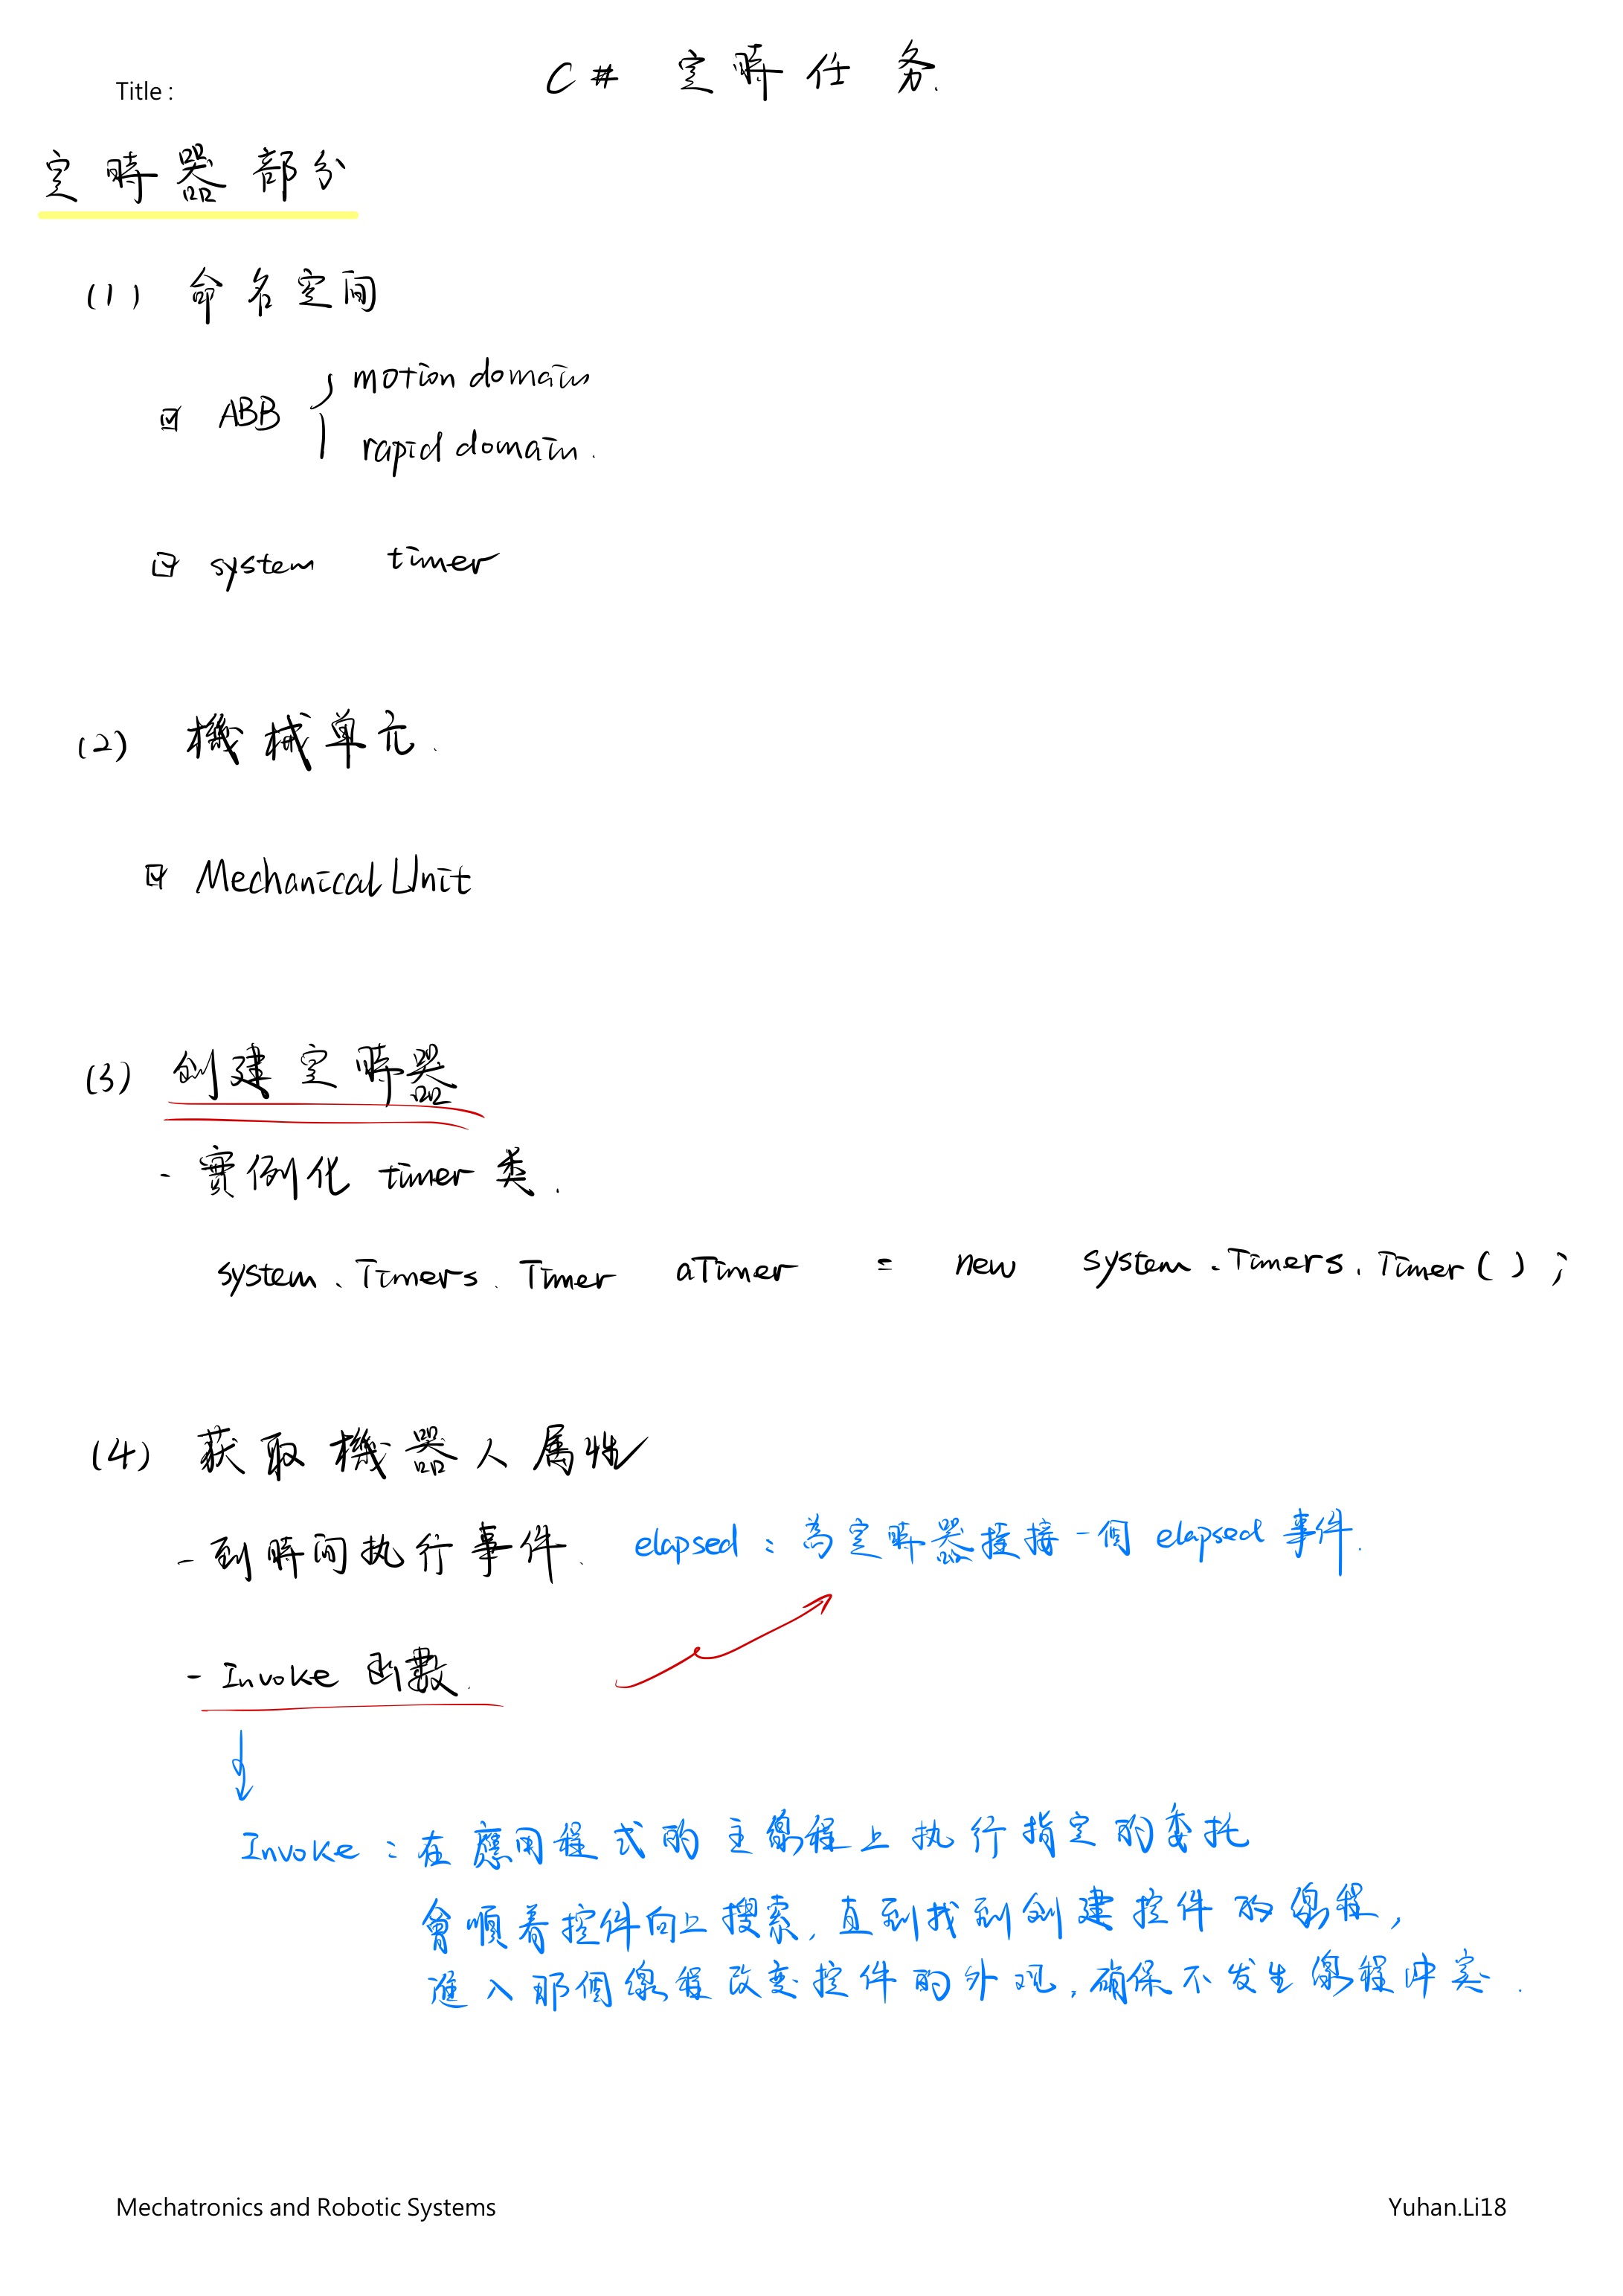 Title :
C# 定時任务.
定時器部分
(1) 命名空间
ABB { motion domain
rapid domain.
system timer
(2) 機械单元.
Mechanical Unit
(3) 创建定時器
- 實例化 timer 类.
system.Timers.Timer aTimer = new system.Timers.Timer();
(4) 获取機器人属性
- 到時间执行事件. elapsed : 為定時器挂接一個 elapsed 事件.
- Invoke 函數.
Invoke : 在應用程式的主線程上执行指定的委托
會順着控件向上搜索, 直到找到创建控件的線程,
進入那個線程改变控件的外观, 确保不发生線程冲突.
Mechatronics and Robotic Systems
Yuhan.Li18